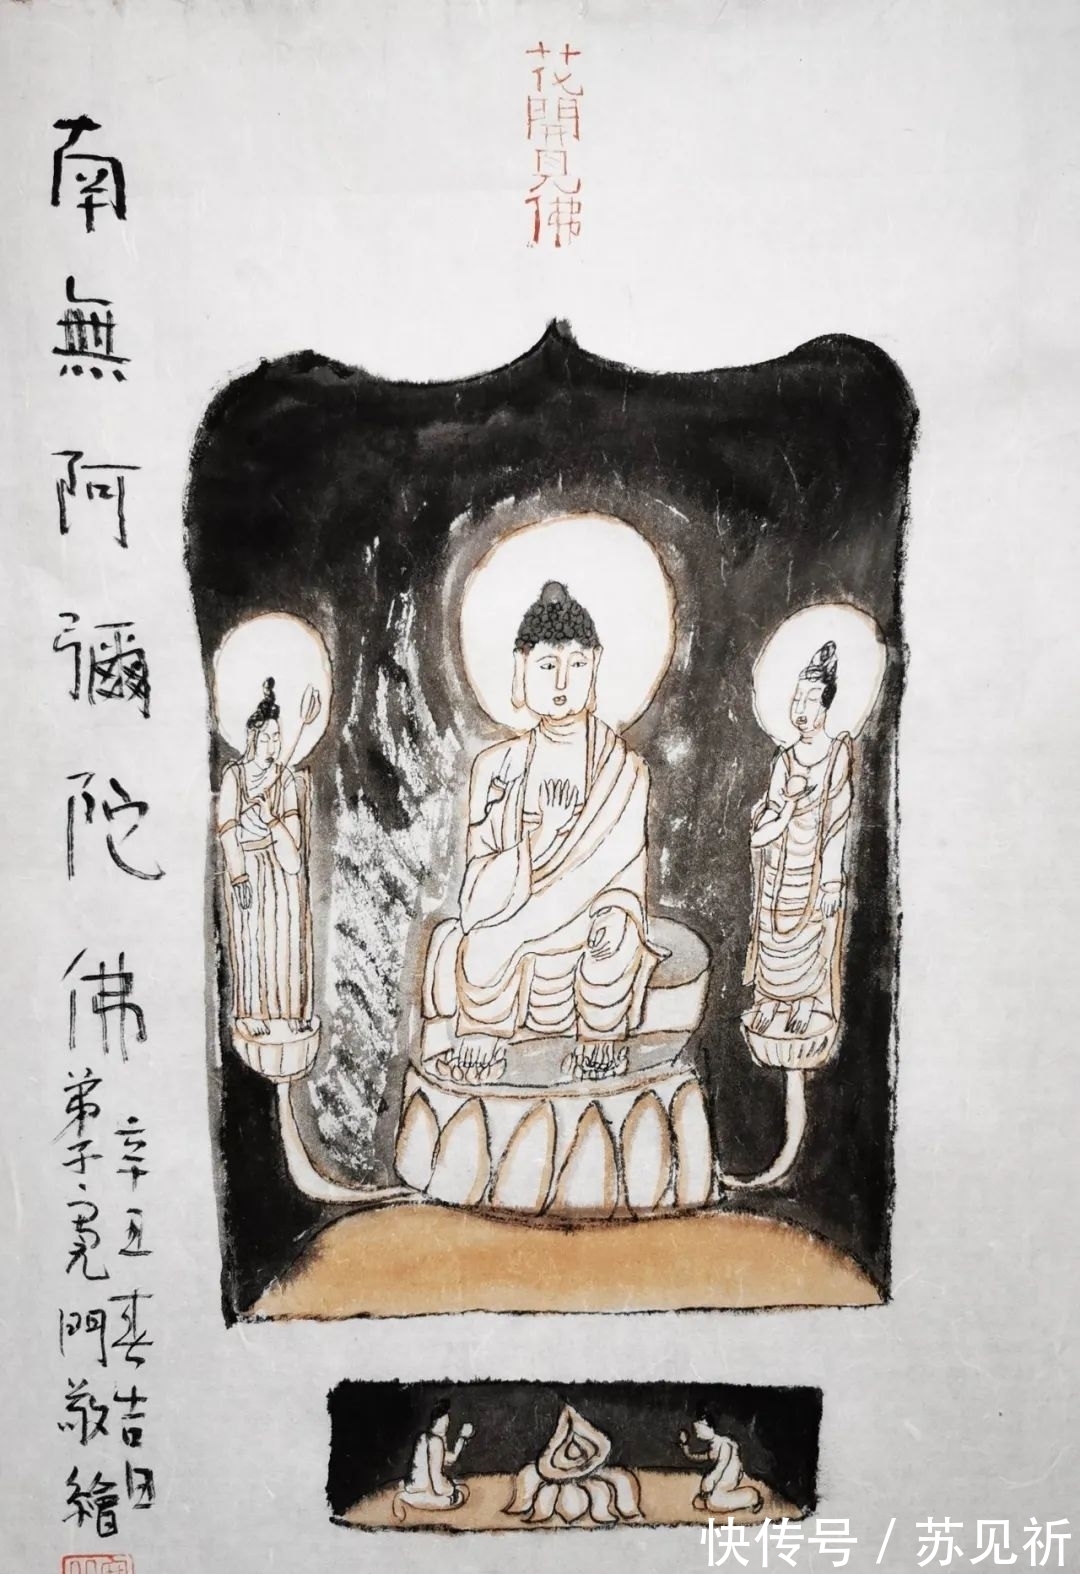 花開見佛
南無阿彌陀佛
辛丑春吉日
弟子寬門敬繪
快传号/苏见祈